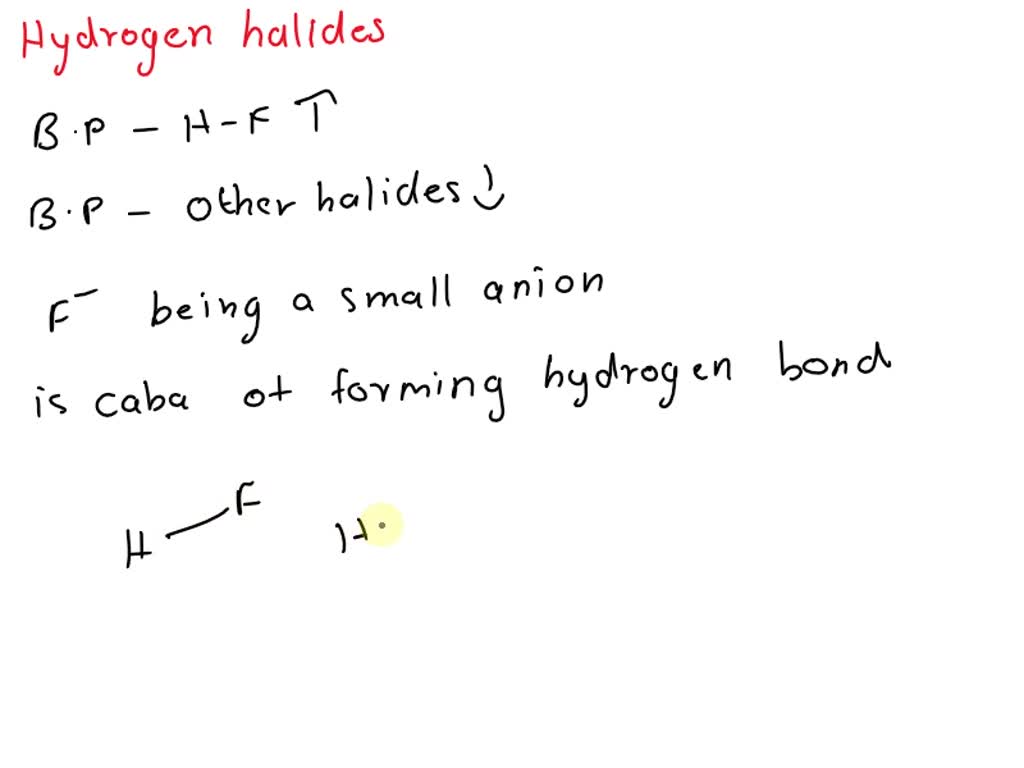 Hydrogen halides
B.P – H-F ↑
B.P – other halides ↓
F⁻ being a small anion
is caba of forming hydrogen bond
H F H